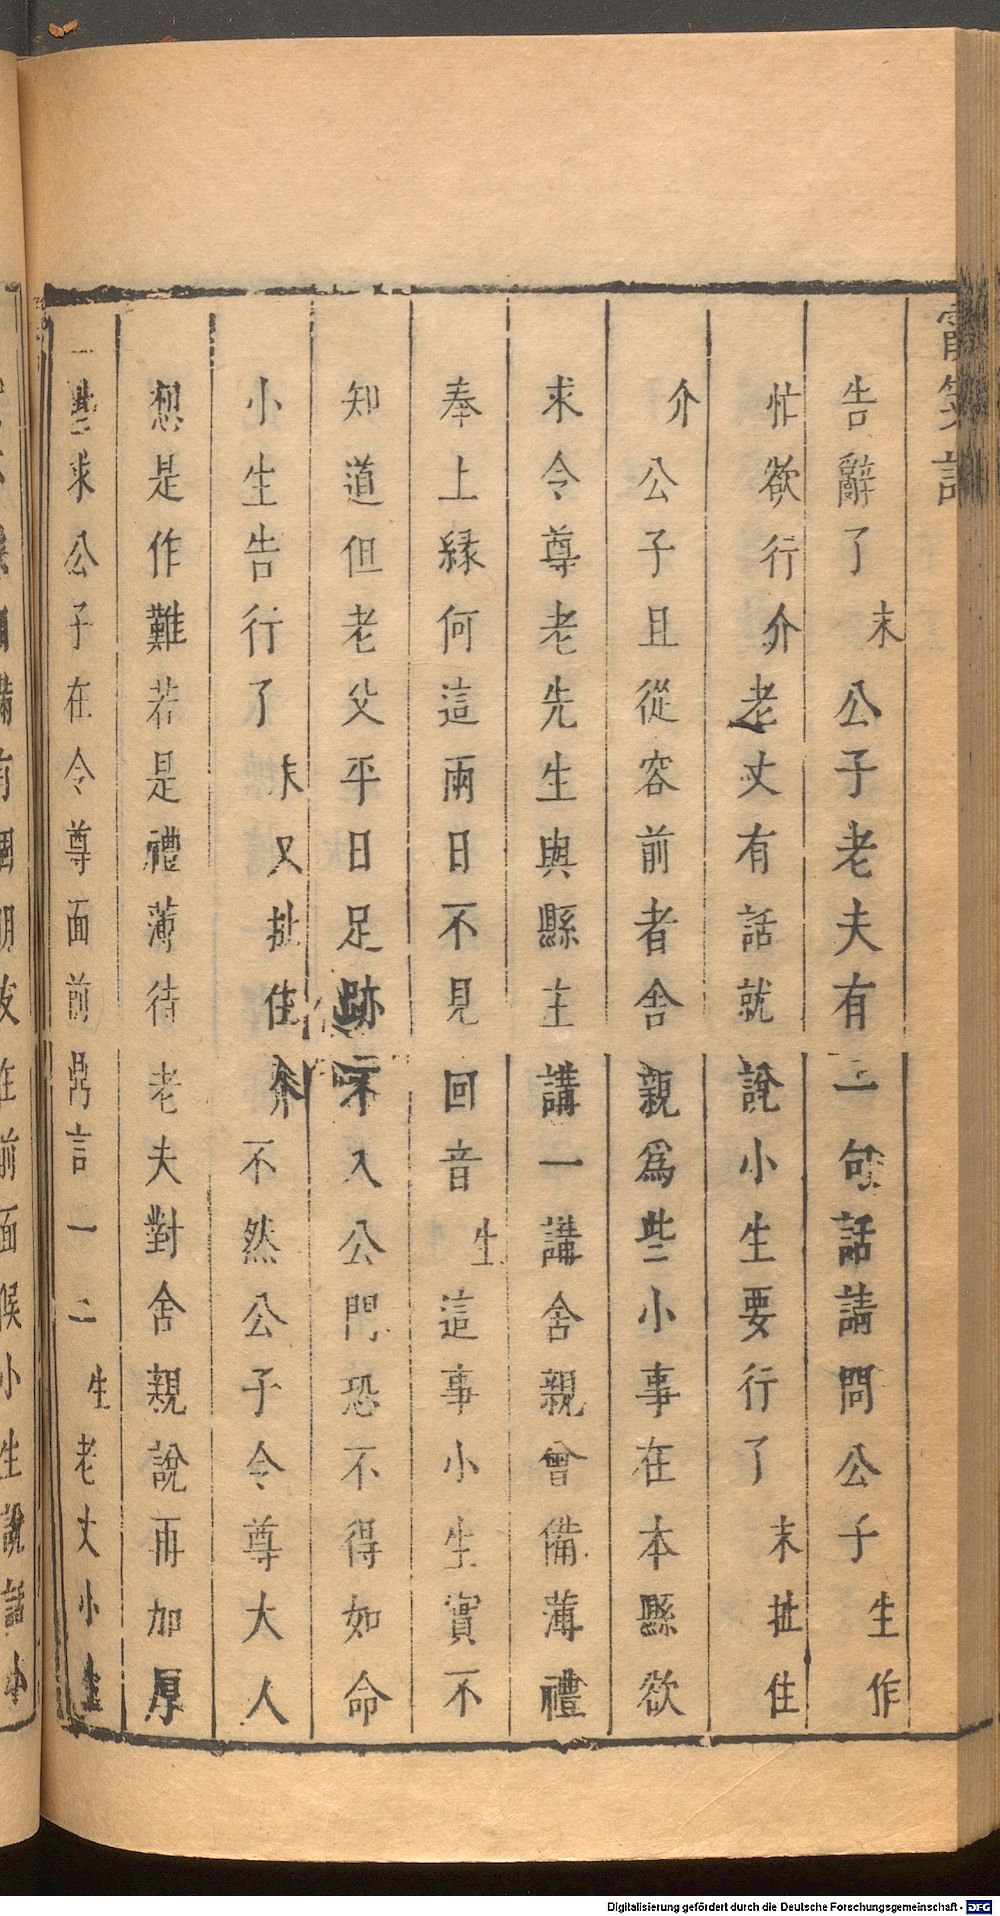 告辭了末公子老夫有一句話請問公子生作
忙欲行介老丈有話就說小生要行了末扯住
介公子且從容前者舍親爲些小事在本縣欲
求令尊老先生與縣主講一講舍親曾備薄禮
奉上緣何這兩日不見回音生這事小生實不
知道但老父平日足跡不入公門恐不得如命
小生告行了末又扯住介不然公子令尊大人
想是作難若是禮薄待老夫對舍親說再加厚
些求公子在令尊面前鼎言一二生老丈小生
Digitalisierung gefördert durch die Deutsche Forschungsgemeinschaft - DFG